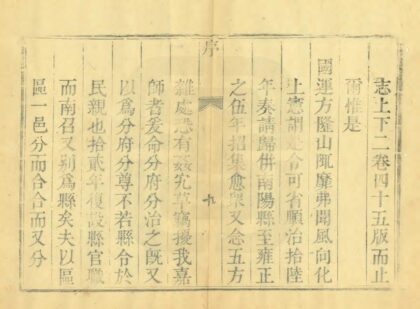 志上下二卷四十五版而止
爾惟是
國運方隆山陬靡弗聞風向化
上憲謂是令可省順治拾陸
年奏請歸併南陽縣至雍正
之伍年招集愈衆又念五方
序
九
雜處恐有姦宄草竊擾我嘉
師者爰命分府分治之旣又
以爲分府分尊不若縣令於
民親也拾貳年復設縣官職
而南召又別爲縣矣夫以區
區一邑分而合合而又分